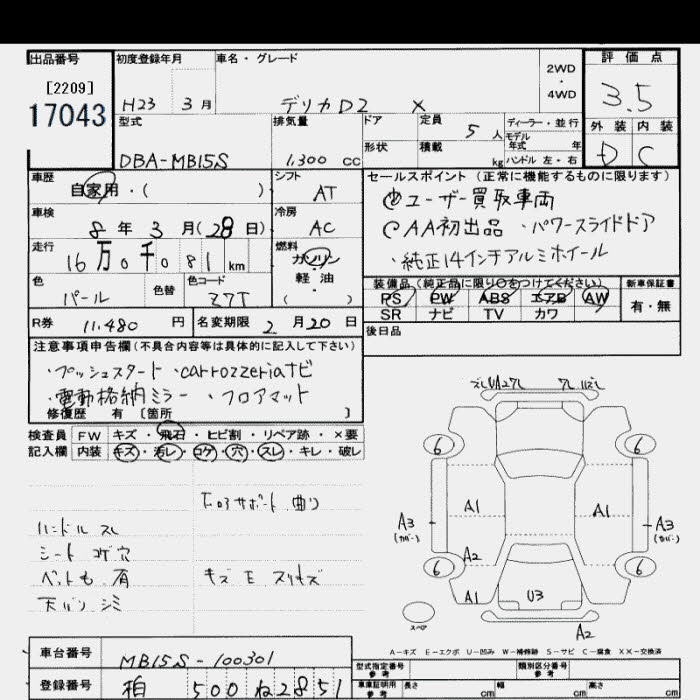 出品番号 初度登録年月 車名・グレード 2WD ・ 4WD 評価点
[2209]
17043
H23 3月 デリカD2 X 3.5
型式 排気量 ドア 定員 5人 ディーラー・並行 外装 内装
モデル年式 年
DBA-MB15S 1,300 cc 形状 積載 kg ハンドル 左・右 D C
車歴 シフト セールスポイント(正常に機能するものに限ります)
自家用・( ) AT ユーザー買取車両
車検 冷房 AA初出品 ・パワースライドドア
8年 3月(28日) AC ・純正14インチアルミホイール
走行 燃料
16万0千081km ガソリン
軽油
( )
色 色替 色コード 装備品(純正品に限り○をつけてください) 新車保証書
パール Z7T PS PW ABS エアB AW 有・無
SR ナビ TV カワ
R券 11,480円 名変期限 2月20日 後日品
注意事項申告欄(不具合内容等は具体的に記入して下さい)
・プッシュスタート ・carrozzeriaナビ
・電動格納ミラー ・フロアマット
修復歴 有 〔箇所 〕
検査員 FW キズ・飛石・ヒビ割・リペア跡・×要
記入欄 内装 キズ・汚レ・コゲ・穴・スレ・キレ・破レ
サポート 曲り
ハンドル スレ
シート コゲ穴
ペット毛 有
天バリ シミ
6 6
A1 A1
A3 A3
(カバー) (カバー)
A2
6 6
A1 U3
スペア
A2
A-キズ E-エクボ U-凹み W-補修跡 S-サビ C-腐食 XX-交換済
車台番号 MB15S-100301 型式指定番号 参考 類別区分番号 参考
登録番号 柏 500 ね 2851 車庫証明用 参考 長さ cm 幅 cm 高さ cm